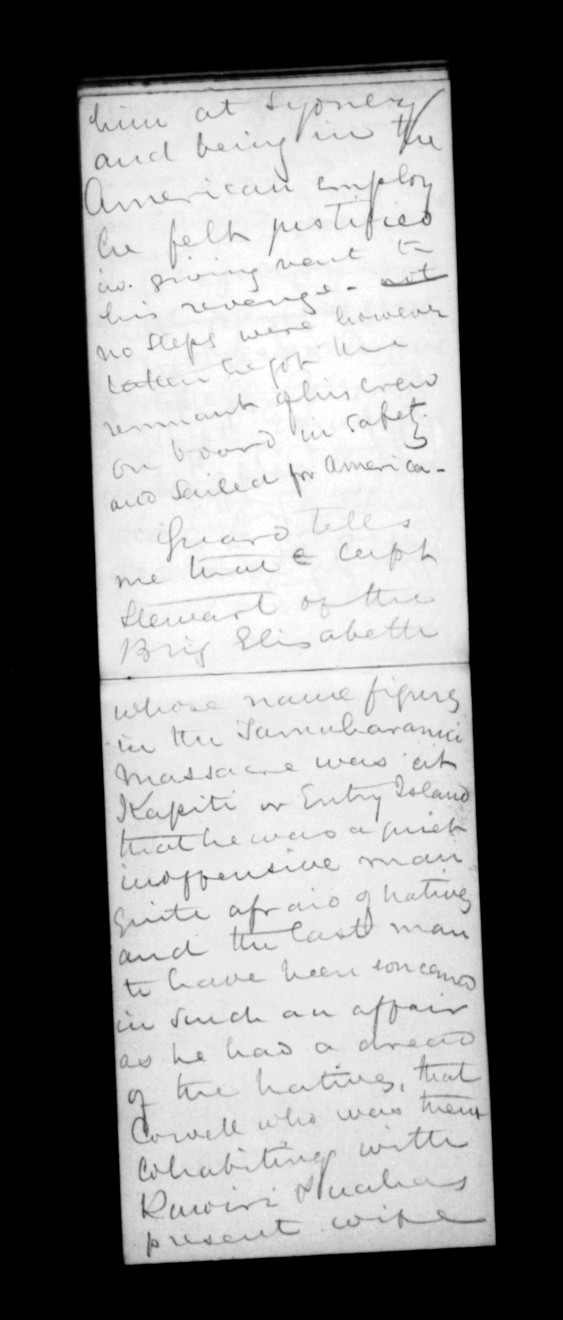 him at Sydney
and being in the
American employ
he felt justified
in giving vent to
his revenge - not
no steps were however
taken he got the
remnant of his crew
on board in safety
and sailed for America -
Guard tells
me that Capt
Stewart of the
Brig Elisabeth
whose name figures
in the
massacre was at
Kapiti or Entry Island
that he was a quiet
inoffensive man
quite afraid of natives
and the last man
to have been concerned
in such an affair
as he had a dread
of the natives, that
Cowell who was then
cohabiting with
Rawiri
present wife